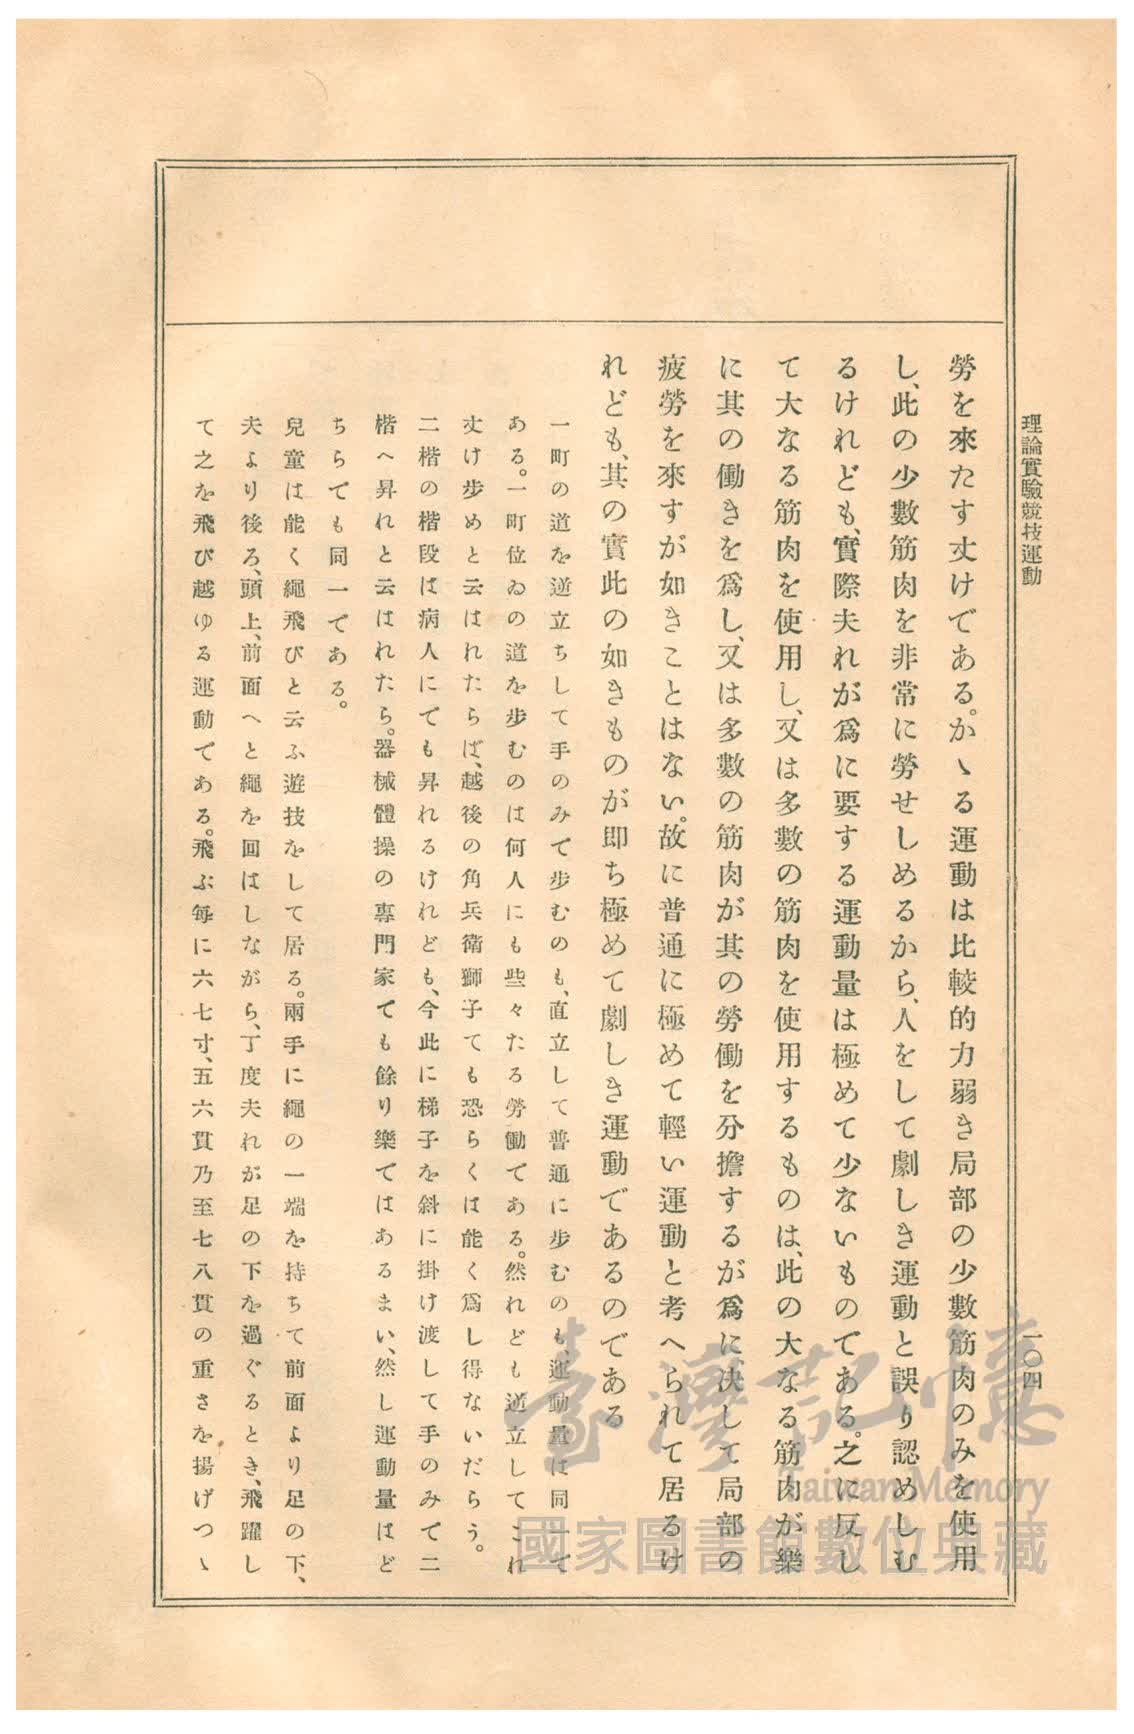 理論實驗競技運動
一〇四
勞を來たす丈けである。かゝる運動は比較的力弱き局部の少數筋肉のみを使用
し、此の少數筋肉を非常に勞せしめるから、人をして劇しき運動と誤り認めしむ
るけれども、實際夫れが爲に要する運動量は極めて少ないものである。之に反し
て大なる筋肉を使用し、又は多數の筋肉を使用するものは、此の大なる筋肉が樂
に其の働きを爲し、又は多數の筋肉が其の勞働を分擔するが爲に、決して局部の
疲勞を來すが如きことはない。故に普通に極めて輕い運動と考へられて居るけ
れども、其の實此の如きものが即ち極めて劇しき運動であるのである
一町の道を逆立ちして手のみで歩むのも、直立して普通に歩むのも、運動量は同一で
ある。一町位ゐの道を歩むのは何人にも些々たる勞働である。然れども逆立してこれ
丈け歩めと云はれたらば、越後の角兵衛獅子ても恐らくは能く爲し得ないだらう。
二楷の楷段は病人にても昇れるけれども、今此に梯子を斜に掛け渡して手のみで二
楷へ昇れと云はれたら。器械體操の專門家ても餘り樂てはあるまい、然し運動量はど
ちらても同一である。
兒童は能く繩飛びと云ふ遊技をして居る。兩手に繩の一端を持ちて前面より足の下、
夫より後ろ、頭上、前面へと繩を回はしながら、丁度夫れが足の下を過ぐるとき、飛躍し
て之を飛び越ゆる運動である。飛ぶ每に六七寸、五六貫乃至七八貫の重さを揚げつゝ
臺灣記憶
Taiwan Memory
國家圖書館數位典藏